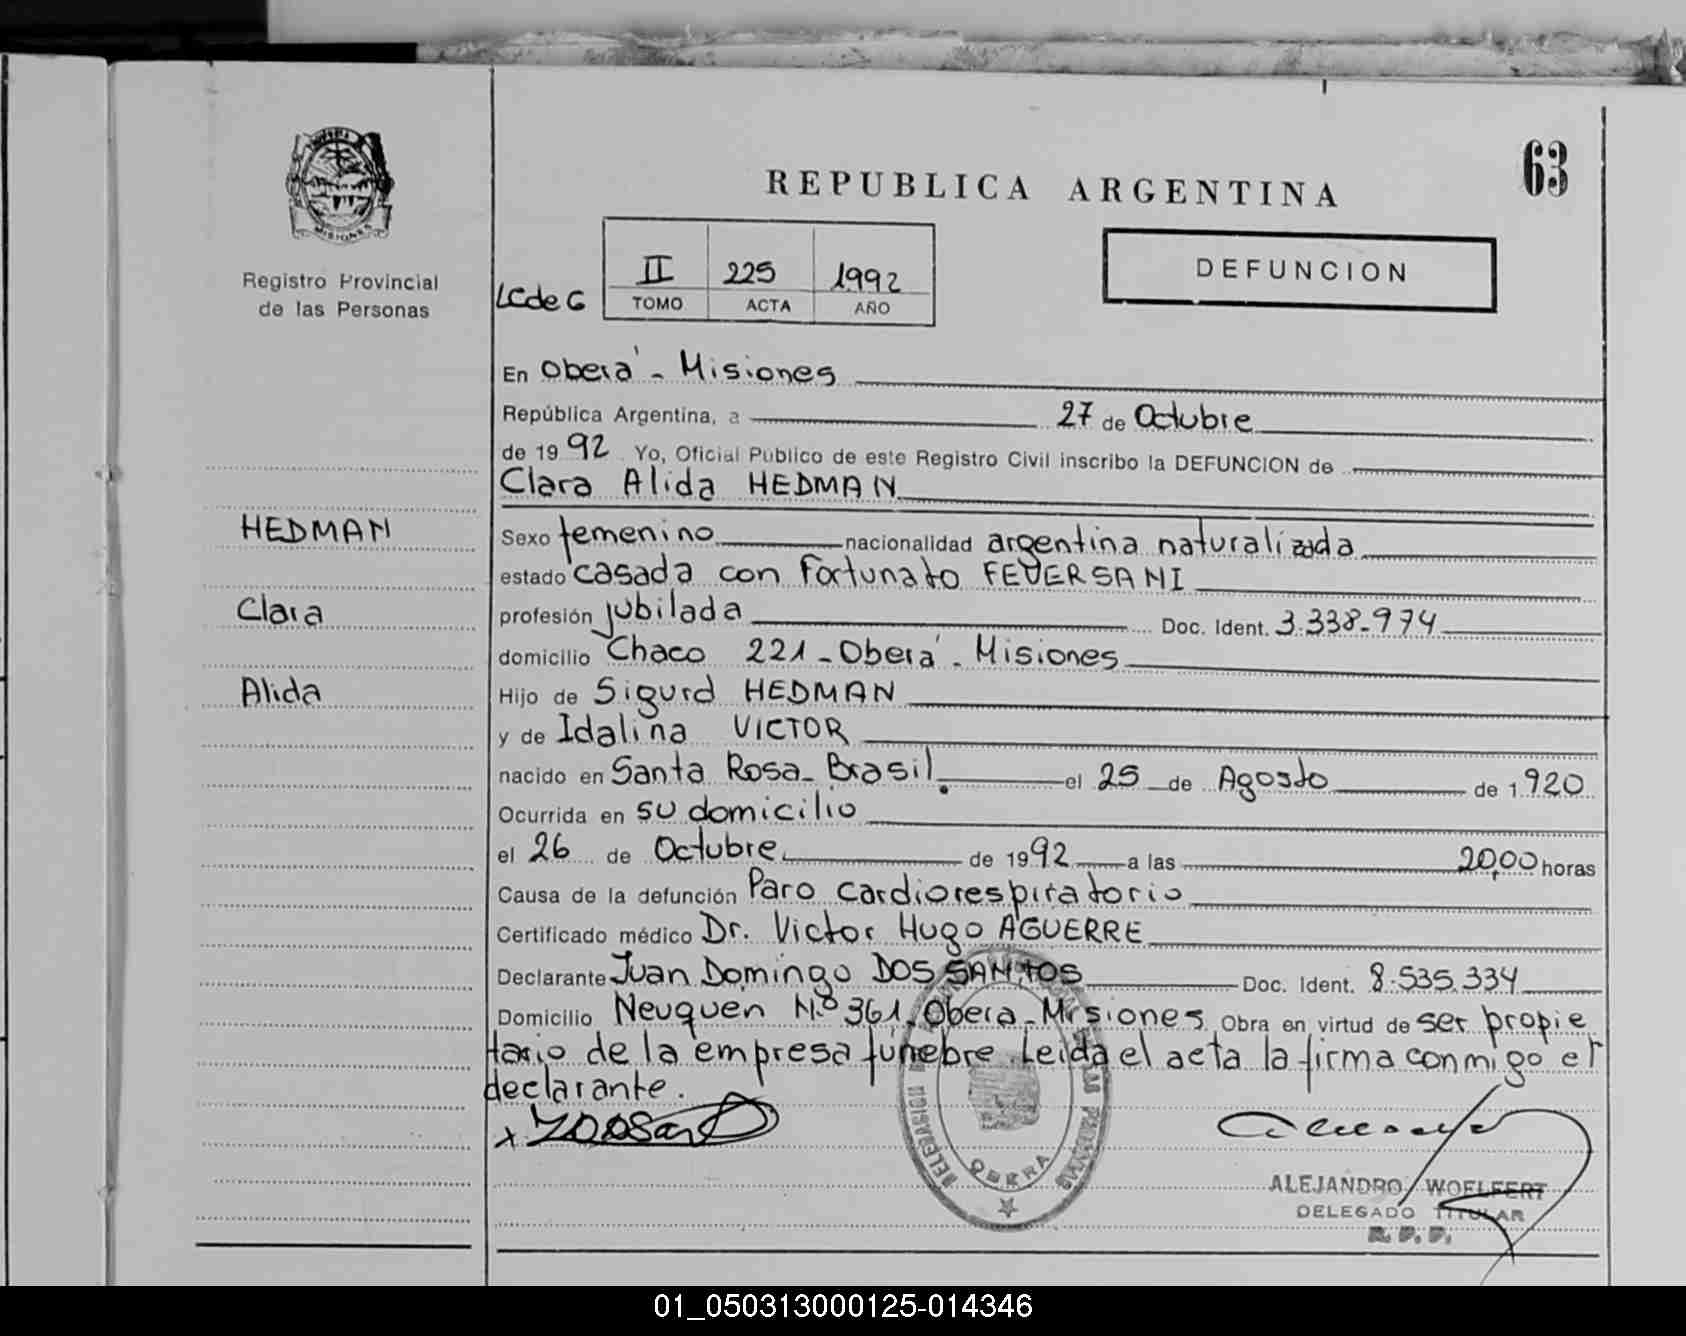 63
REPUBLICA ARGENTINA
MISIONES
Registro Provincial
de las Personas
LCde G
II 225 1992
TOMO ACTA AÑO
DEFUNCION
En Oberá - Misiones
República Argentina, a 27 de Octubre
de 1992 Yo, Oficial Público de este Registro Civil inscribo la DEFUNCION de
Clara Alida HEDMAN
HEDMAN
Sexo femenino nacionalidad argentina naturalizada
estado casada con Fortunato FEVERSANI
Clara
profesión jubilada Doc. Ident. 3.338.974
domicilio Chaco 221 - Oberá - Misiones
Alida
Hijo de Sigurd HEDMAN
y de Idalina VICTOR
nacido en Santa Rosa - Brasil. el 25 de Agosto de 1920
Ocurrida en su domicilio
el 26 de Octubre de 1992 a las 20,00 horas
Causa de la defunción Paro cardiorespiratorio
Certificado médico Dr. Victor Hugo AGUERRE
Declarante Juan Domingo DOS SANTOS Doc. Ident. 8.535.334
Domicilio Neuquen N.º 361, Obera - Misiones Obra en virtud de ser propie
tario de la empresa fúnebre. Leída el acta la firma conmigo el
declarante.
OBERA
ALEJANDRO WOELFERT
DELEGADO TITULAR
R. P. P.
01_050313000125-014346